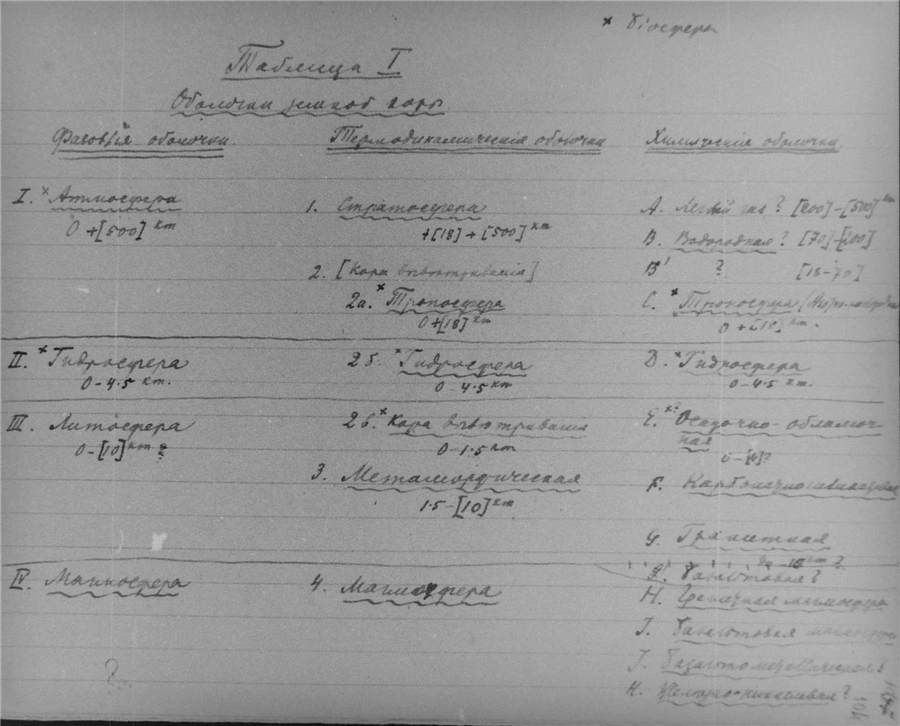 × біосфера
Таблица I
Оболочки земной коры.
Фазовыя оболочки. Термодинамическія оболочки Химическія оболочки.
I. × Атмосфера 1. Стратосфера A. Легкій газ? [200]-[500] km
0+[500] km +[18]+[500] km B. Водородная? [70]-[200]
2. [Кора выветриванія] B' ? [18-70]
2а. × Тропосфера C. × Тропосфера
0+[18] km 0+[18] km.
II. × Гидросфера 2б. × Гидросфера D. × Гидросфера
0-4.5 km. 0-4.5 km 0-4.5 km.
III. Литосфера 2в. × Кора выветриванія E. ×? Осадочно-обломоч-
ная
0-[10] km ? 0-1.5 km
3. Метаморфическая F.
1.5-[10] km
G. Гранитная
km ?
IV. Магмосфера 4. Магмосфера базальтовая?
H. магмосфера
I. базальтовая
J.
K. Железно-никкелевая?
?